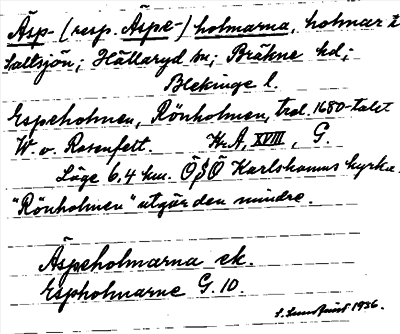 Äsp- (resp. Äspe-) holmarna, holmar i
saltsjön; Hällaryd sn; Bräkne hd;
Blekinge l.
Espeholmen, Rönholmen, trol. 1680-talet
W. v. Rosenfelt. Kr. A, XVIII, G.
Läge 6,4 km. ÖSÖ Karlshamns kyrka.
"Rönholmen" utgör den mindre.
Äspeholmarna ek.
Espholmarne G. 10.
1936.